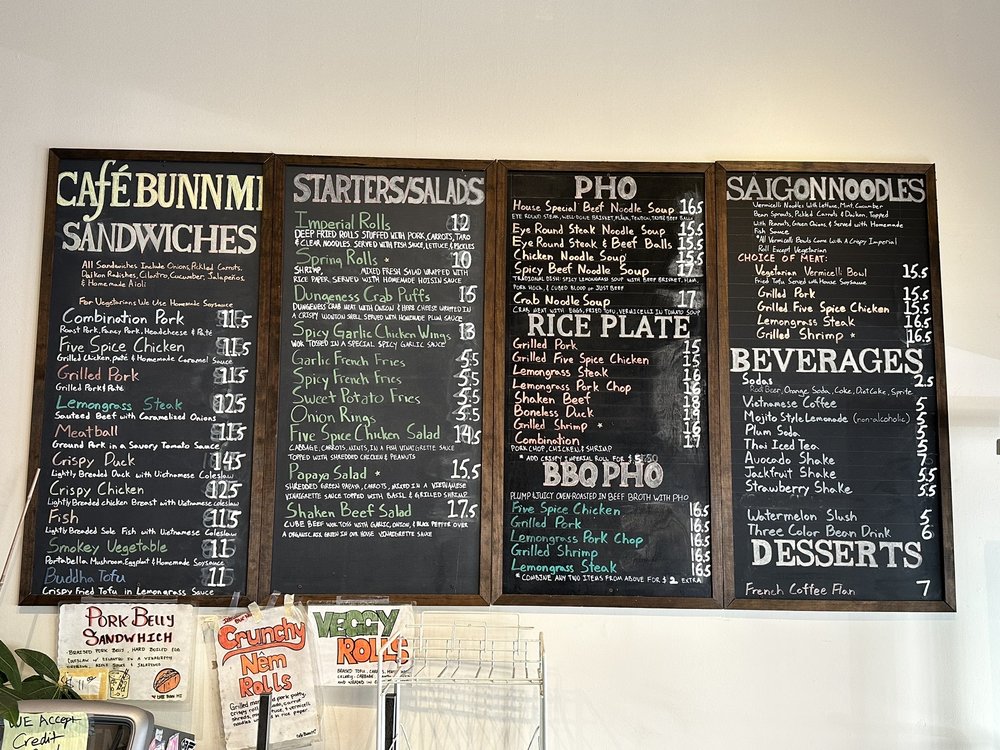 Café BUNN MI
SANDWICHES
All Sandwiches Include Onions, Pickled Carrots,
Daikon Radishes, Cilantro, Cucumber, Jalapeños,
& Homemade Aioli
For Vegetarians We Use Homemade Soysauce
Combination Pork 11.5
Roast Pork, Fancy Pork, Headcheese & Paté
Five Spice Chicken 11.5
Grilled Chicken, paté & Homemade Caramel Sauce
Grilled Pork 11.5
Grilled Pork & Paté
Lemongrass Steak 12.5
Sauteed Beef with Caramelized Onions
Meatball 11.5
Ground Pork in a Savory Tomato Sauce
Crispy Duck 14.5
Lightly Breaded Duck with Vietnamese Coleslaw
Crispy Chicken 12.5
Lightly Breaded chicken Breast with Vietnamese coleslaw
Fish 11.5
Lightly Breaded Sole Fish with Vietnamese Coleslaw
Smokey Vegetable 11
Portabella Mushroom, Eggplant & Homemade Soysauce
Buddha Tofu 11
Crispy Fried Tofu in Lemongrass Sauce
STARTERS/SALADS
Imperial Rolls 12
DEEP FRIED ROLLS STUFFED WITH PORK, CARROTS, TARO
& CLEAR NOODLES. SERVED WITH FISH SAUCE, LETTUCE & PICKLES
Spring Rolls * 10
SHRIMP, MIXED FRESH SALAD WRAPPED WITH
RICE PAPER SERVED WITH HOMEMADE HOISIN SAUCE
Dungeness Crab Puffs 15
DUNGENESS CRAB MEAT WITH ONION & HERB CHEESE WRAPPED IN
A CRISPY WONTON SHELL SERVED WITH HOMEMADE PLUM SAUCE
Spicy Garlic Chicken Wings 13
WOK TOSSED IN A SPECIAL SPICY GARLIC SAUCE
Garlic French Fries 5.5
Spicy French Fries 5.5
Sweet Potato Fries 5.5
Onion Rings 5.5
Five Spice Chicken Salad 14.5
CABBAGE, CARROTS, MINTS, IN A FISH VINAIGRETTE SAUCE
TOPPED WITH SHREDDED CHICKEN & PEANUTS
Papaya Salad * 15.5
SHREDDED GREEN PAPAYA, CARROTS, MIXED IN A VIETNAMESE
VINAIGRETTE SAUCE TOPPED WITH BASIL & GRILLED SHRIMP
Shaken Beef Salad 17.5
CUBE BEEF WOK TOSS WITH GARLIC, ONION, & BLACK PEPPER OVER
A ORGANIC MIX GREEN IN OUR HOUSE VINAIGRETTE SAUCE
PHO
House Special Beef Noodle Soup 16.5
EYE ROUND STEAK, WELL-DONE BRISKET, FLANK, TENDON, TRIPE BEEF BALLS
Eye Round Steak Noodle Soup 15.5
Eye Round Steak & Beef Balls 15.5
Chicken Noodle Soup 15.5
Spicy Beef Noodle Soup 17
TRADITIONAL DISH SPICY LEMONGRASS SOUP WITH BEEF BRISKET, HAM,
PORK HOCK, & CUBED BLOOD or JUST BEEF
Crab Noodle Soup 17
CRAB MEAT WITH EGGS, FRIED TOFU, VERMICELLI IN TOMATO SOUP
RICE PLATE
Grilled Pork 15
Grilled Five Spice Chicken 15
Lemongrass Steak 16
Lemongrass Pork Chop 16
Shaken Beef 18
Boneless Duck 19
Grilled Shrimp * 16
Combination 19
PORK CHOP, CHICKEN, & SHRIMP
* ADD CRISPY IMPERIAL ROLL FOR $ 3.50
BBQ PHO
PLUMP & JUICY OVEN-ROASTED IN BEEF BROTH WITH PHO
Five Spice Chicken 16.5
Grilled Pork 16.5
Lemongrass Pork Chop 16.5
Grilled Shrimp 16.5
Lemongrass Steak 16.5
* COMBINE ANY TWO ITEMS FROM ABOVE FOR $ 2 EXTRA
SAIGON NOODLES
Vermicelli Noodles With Lettuce, Mint, Cucumber
Bean Sprouts, Pickled Carrots & Daikon. Topped
With Peanuts, Green Onions & Served with Homemade
Fish Sauce
*All Vermicelli Bowls Come With a Crispy Imperial
Roll Except Vegetarian
CHOICE OF MEAT:
Vegetarian Vermicelli Bowl 15.5
Fried Tofu Served with House Soysauce
Grilled Pork 15.5
Grilled Five Spice Chicken 15.5
Lemongrass Steak 16.5
Grilled Shrimp * 16.5
BEVERAGES
Sodas 2.5
Root Beer, Orange Soda, Coke, Diet Coke, Sprite
Vietnamese Coffee 5
Mojito Style Lemonade (non-alcoholic) 5
Plum Soda 5
Thai Iced Tea 5
Avocado Shake 7
Jackfruit Shake 5.5
Strawberry Shake 5.5
Watermelon Slush 5
Three Color Bean Drink 6
DESSERTS
French Coffee Flan 7
PORK BELLY
SANDWHICH
BRAISED PORK BELLY, HARD BOILED EGG
COLESLAW
& JALAPENOS
Crunchy
Nêm
Rolls
Grilled pork patty,
crispy roll, carrot
shreds, & vermicelli
noodles in rice paper.
VEGGY
ROLLS
BRAISED TOFU,
CELERY, CABBAGE
AND WRAPPED IN
WE Accept
Credit